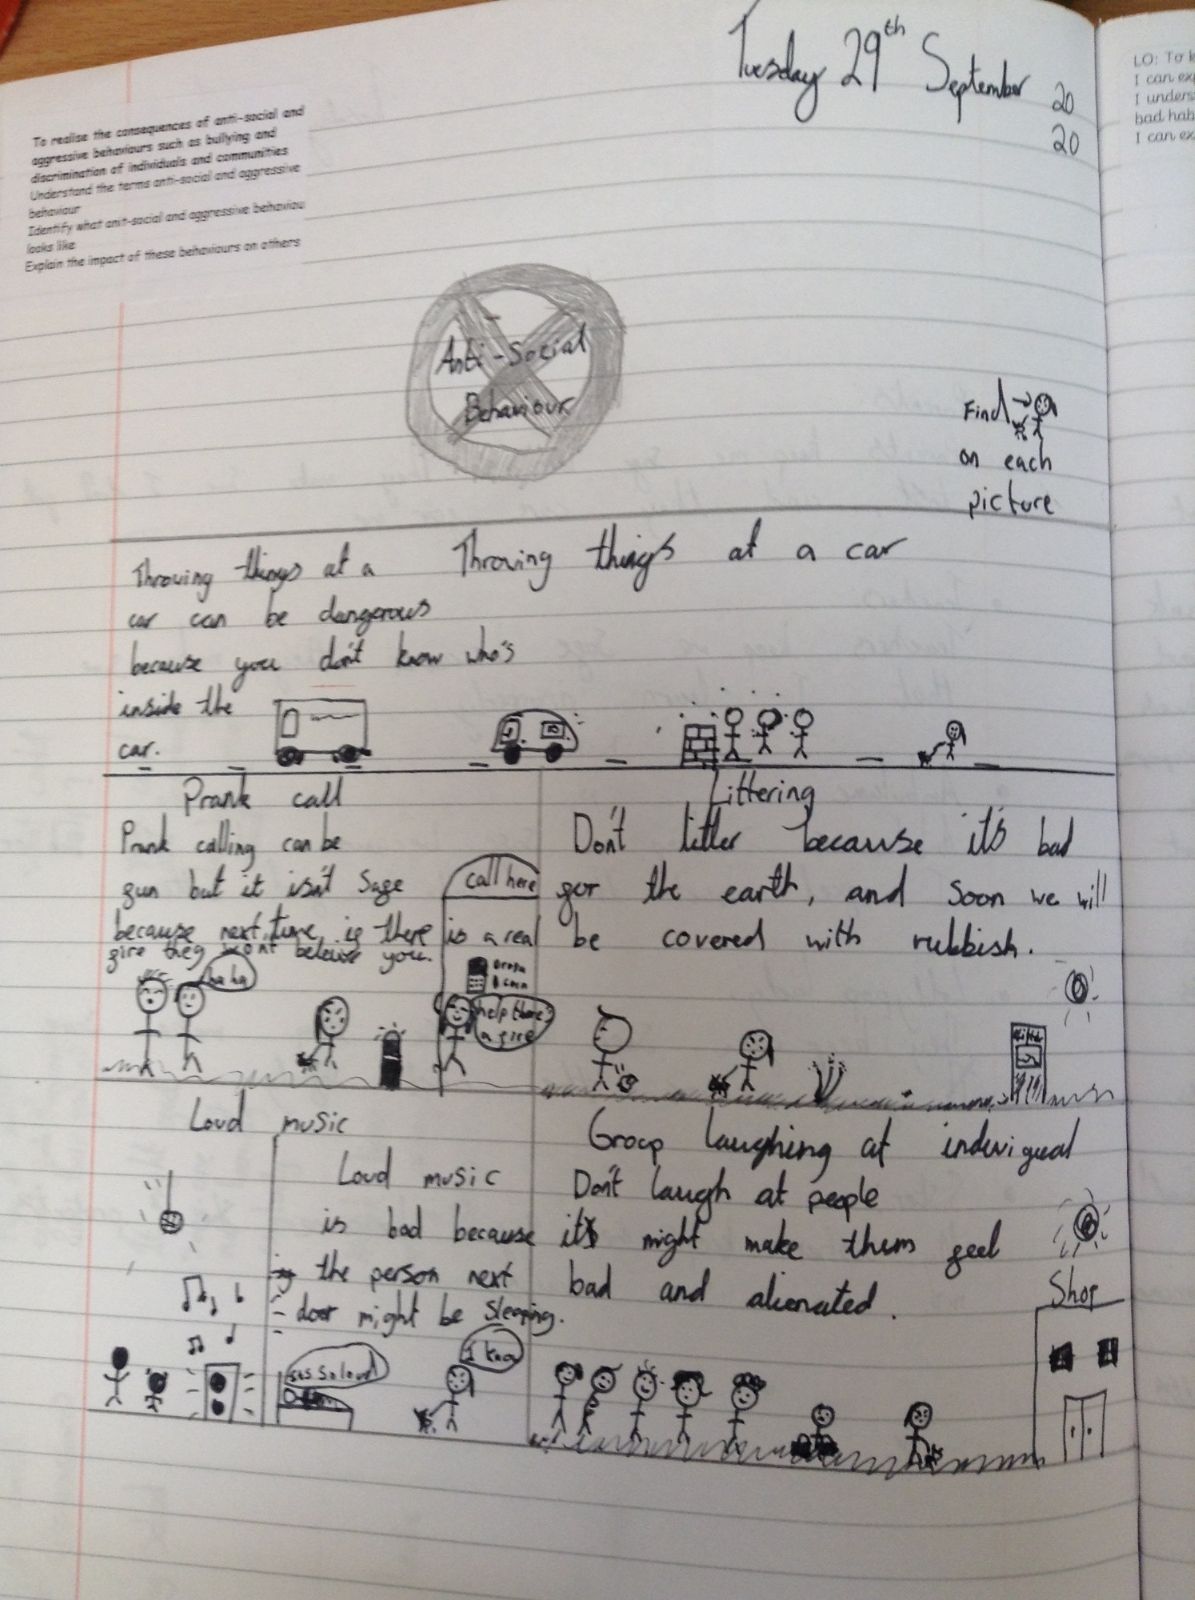 Tuesday 29th September 20
20
To realise the consequences of anti-social and
aggressive behaviours such as bullying and
discrimination of individuals and communities
Understand the terms anti-social and aggressive
behaviour
Identify what anit-social and aggressive behaviou
looks like
Explain the impact of these behaviours on others
LO: To k
I can exp
I unders
bad hab
I can ex
Anti-Social
Behaviour
Find →
on each
picture
Throwing things at a car
Throwing things at a
car can be dangerous
because you don't know who's
inside the
car.
Prank call
Prank calling can be
gun but it isn't sage
because next time ig there is a real
gire they wont beleive you.
call here
ha ha
help there's
a gire
Littering
Don't litter because it's bad
gor the earth, and soon we will
be covered with rubbish.
Loud music
Loud music
is bad because
the person next
door might be sleeping.
I know
Group laughing at indevigual
Don't laugh at people
it might make them geel
bad and alienated.
Shop